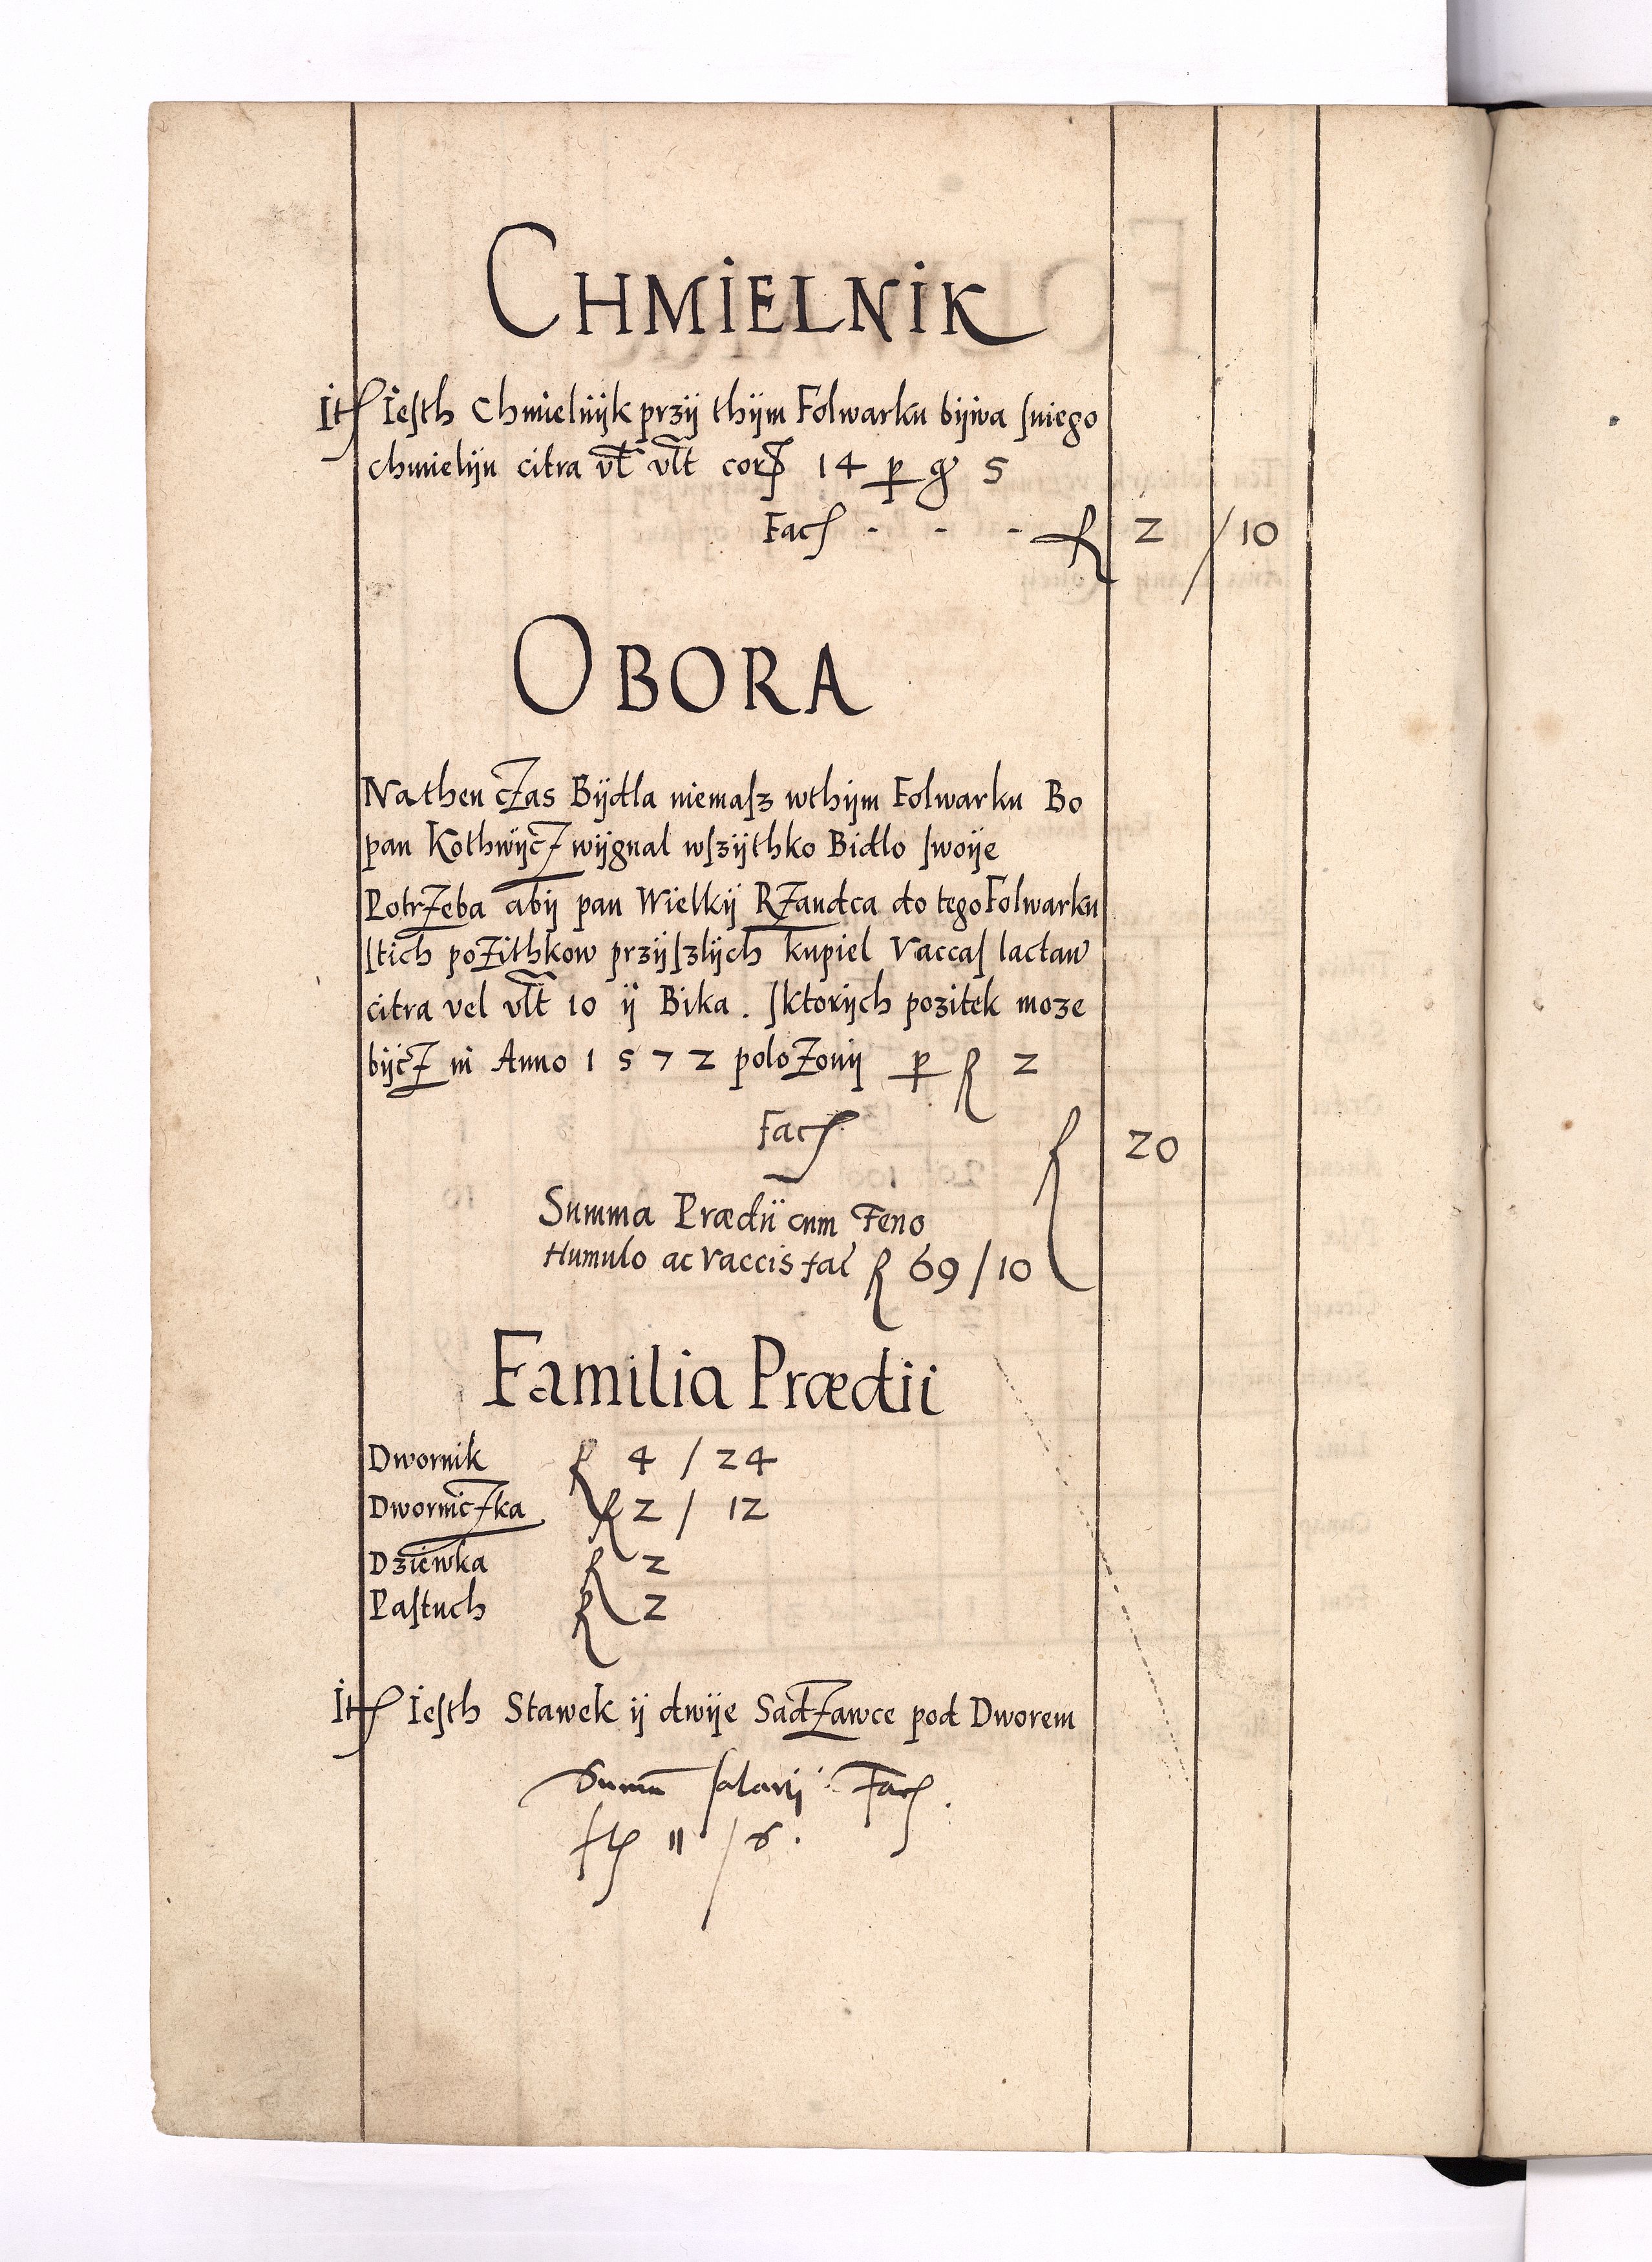 CHMIELNIK
It Iesth Chmielnijk przij thijm Folwarku bijwa sniego
chmielijn citra vl vlt cor 14 p g 5
Fac - - - R 2 / 10
OBORA
Nathen cZas Bijdla niemasz wthijm Folwarku Bo
pan KothwijcZ wijgnal wszijthko Bidlo swoije
PotrZeba abij pan Wielkij RZandca do tego Folwarku
stich poZithkow przijszlijch kupiel Vaccas lactan
citra vel vlt 10 ij Bika . sktorijch pozitek moze
bijcZ in Anno 1572 poloZonij p R 2
Fac R 20
Summa Prædii cum Feno
Humulo ac Vaccis fac R 69 / 10
Familia Prædii
Dwornik R 4 / 24
DwornicZka R 2 / 12
Dziewka R 2
Pastuch R 2
It Iesth Stawek ij dwije SadZawce pod Dworem
Suma salarij Fac .
11 / 6 .